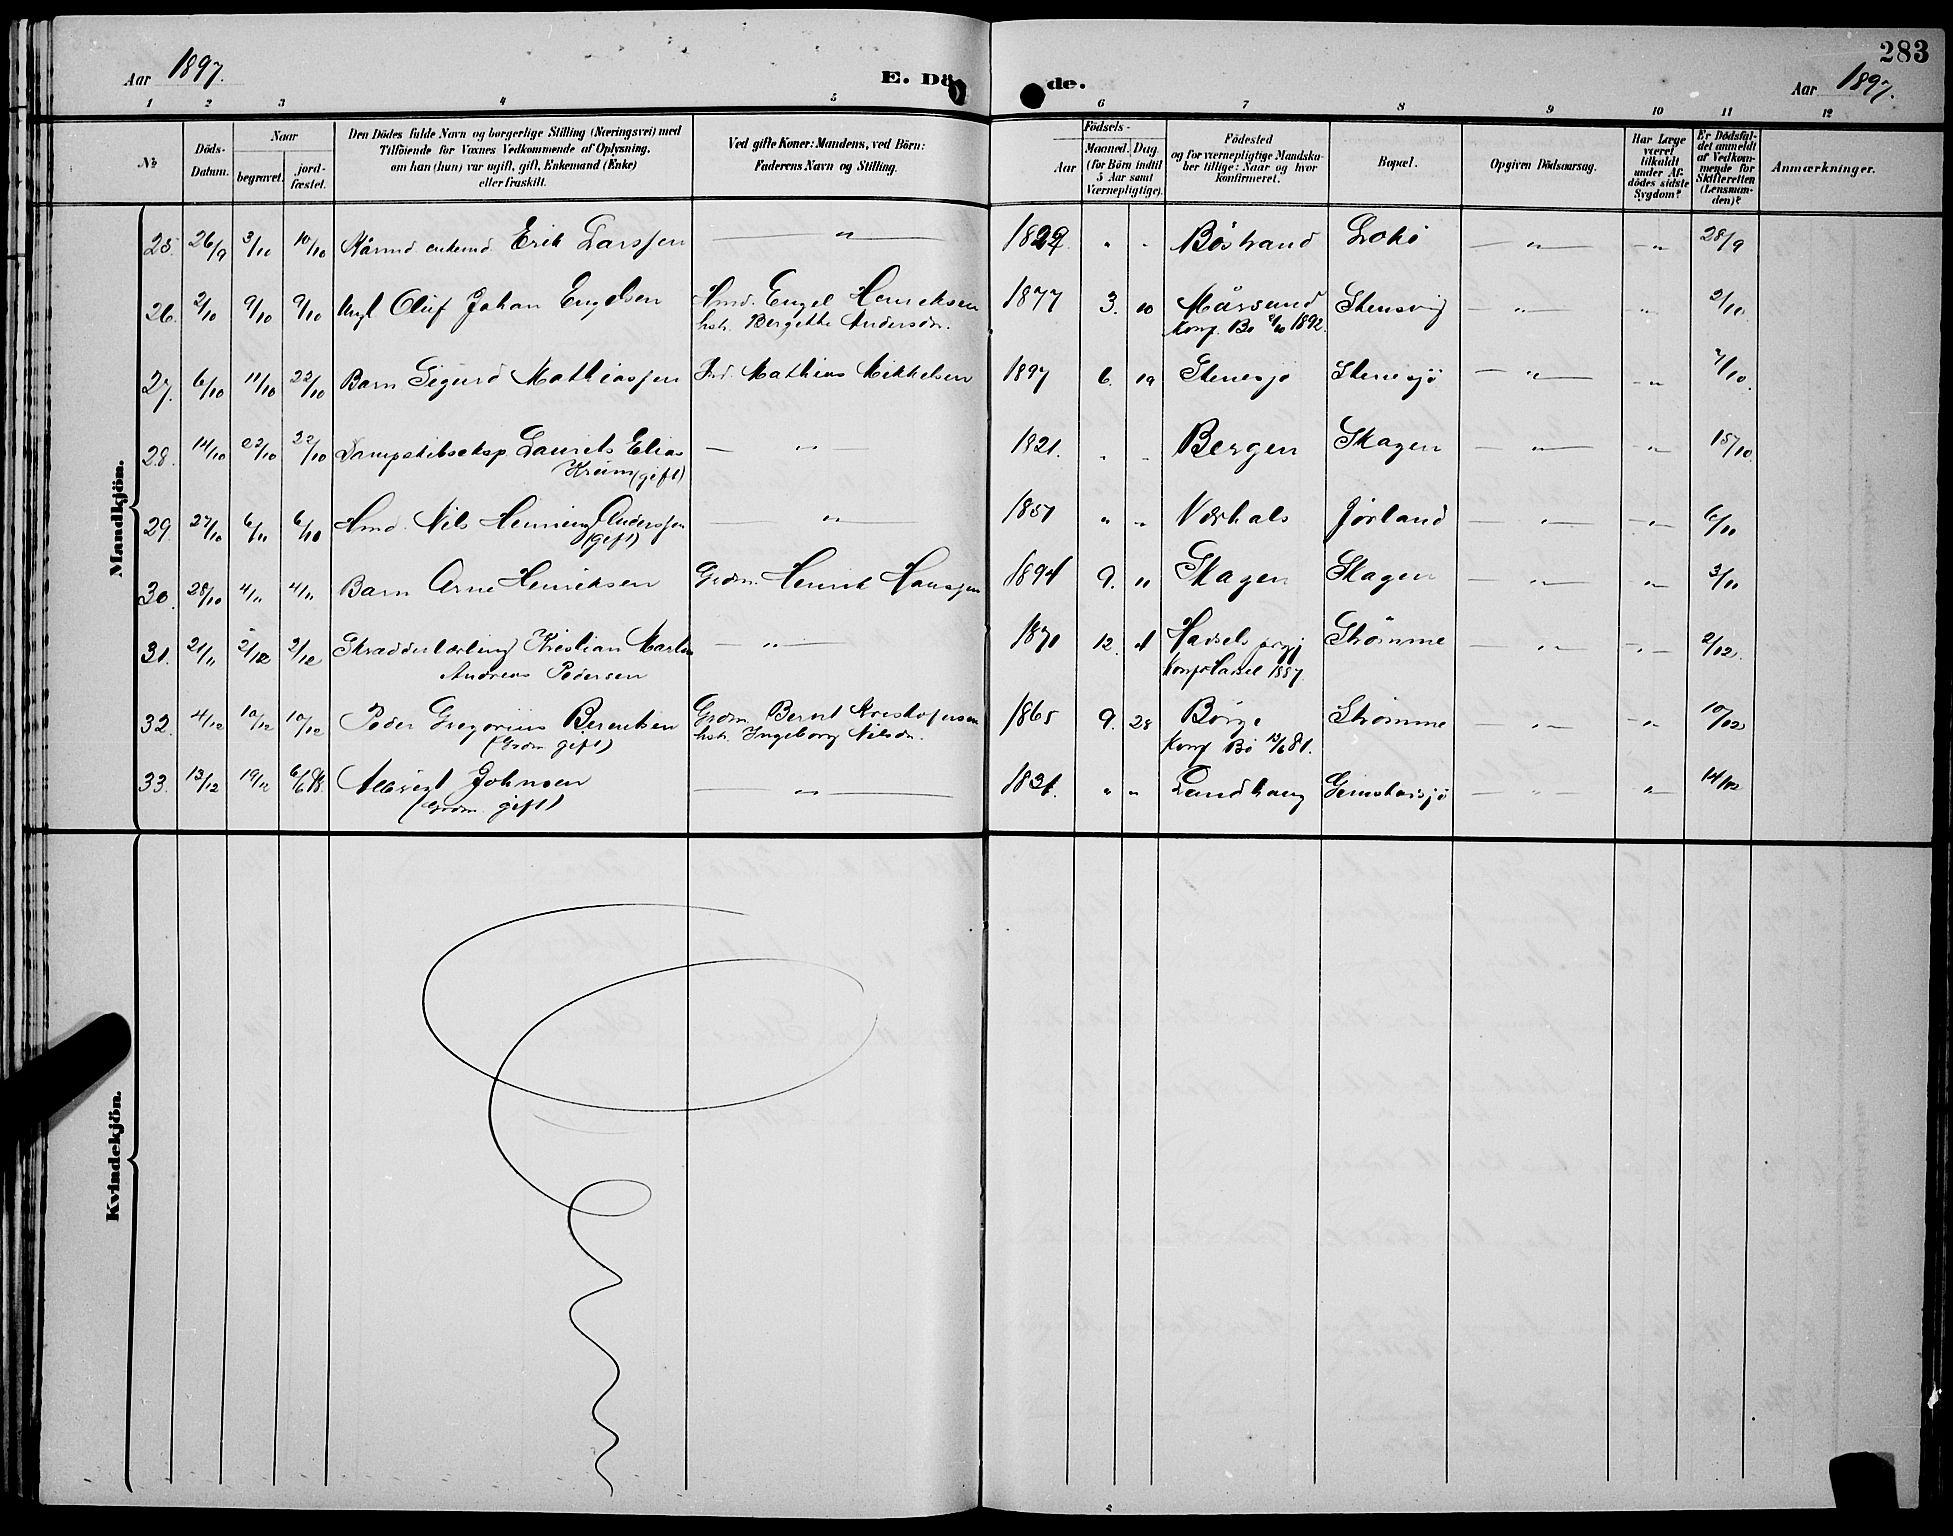 283
Aar 1897.
E. Dö de.
Aar 1897.
1 2 3 4 5 6 7 8 9 10 11 12
No
Döds-Datum.
Naar
begravet.
jord-fæstet.
Den Dödes fulde Navn og borgerlige Stilling (Næringsvei) med
Tilföiende for Voxnes Vedkommende af Oplysning,
om han (hun) var ugift, gift, Enkemand (Enke)
eller fraskilt.
Ved gifte Koner: Mandens, ved Börn:
Faderens Navn og Stilling.
Födsels-
Aar
Maaned.
Dag
(for Börn indtil
5 Aar samt
Værnepligtige).
Födested
og for værnepligtige Mandska-
ber tillige: Naar og hvor
konfirmeret.
Bopæl.
Opgiven Dödsaarsag.
Har Læge
været
tilkaldt
under Af-
dödes sidste
Sygdom?
Er Dödsfal-
det anmeldt
af Vedkom-
mende for
Skifteretten
(Lensman-
den)?
Anmærkninger.
Mandkjön.
25. 26/9 3/10 10/10 Kårmd. enkemd. Erik Larssen — " — " " Böstrand — " — " 28/9
26. 2/10 9/10 9/10 Ungk Oluf Johan Engelsen Hmd. Engel Henriksen 1877 3. 10 Mårsund Stensvig — " — " 2/10
hstr. Bergitte Andersdr. Konf. Bö 1892.
27. 6/10 11/10 22/10 Barn Sigurd Mathiassen Ind. Mathias Mikkelsen 1897 6. 19 Stenesjö Stenesjö — " — " 7/10
28. 14/10 22/10 22/10 Dampskibseksp. Laurits Elias — " — 1821. " " Bergen Skagen — " — " 15/10
Krum (gift)
29. 27/10 6/11 6/11 Hmd. Nils Henning Anderssen — " — 1857 " " Jörland — " — " 6/11
(gift)
30. 28/10 4/11 4/11 Barn Arne Henriksen Grdm. Henrik Hanssen 1894 9. 11 Skagen Skagen — " — " 3/11
31. 21/11 2/12 2/12 Skrædderlærling Kristian Martin — " — 1871 12. 4 Hadsels prgj Strömme — " — " 2/12
Andreas Pedersen Konf. Hadsel 1887
32. 4/12 10/12 10/12 Peder Gregorius Berentsen Grdm. Bernt Kristofersen 1865 9. 28 Börge Strömme — " — " 10/12
(Grdm gift) hstr. Ingeborg Nilsdr. Konf Bö 81.
33. 13/12 19/12 6/6 98. Albrigt Johnsen — " — 1831. " " Sandhaug — " — " 14/12
(Grdm gift)
Kvindekjön.